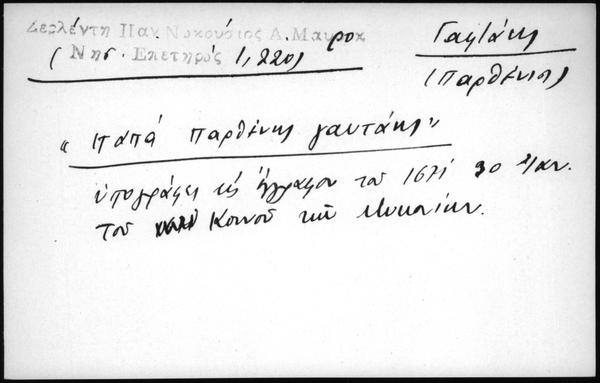 Δερλέντη Παν. Νικούσιος Α. Μαυροκ
ρο
(Νησ. Επετηρίς 1, 220)
Γαφτάκης
(Παρθένιος)
"παπά παρθένης γαυτάκης"
υπογράφει εις έγγραφον του 1671 30 Ιαν.
του Κοινού της Μυκονίων.